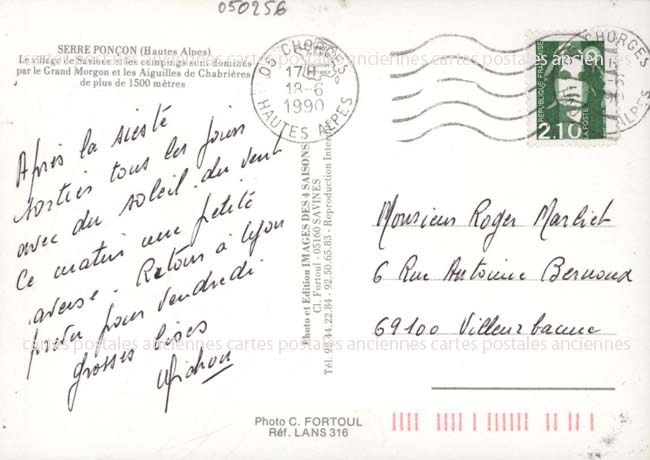 050256
SERRE PONÇON (Hautes Alpes)
Le village de Savines et les campings sont dominés
par le Grand Morgon et les Aiguilles de Chabrières
de plus de 1500 mètres
05 CHORGES
17H
18-6
1990
HAUTES ALPES
CHORGES
ALPES
REPUBLIQUE FRANÇAISE
LA POSTE
2,10
Après la sieste
sorties tous les jours
avec du soleil du vent
Ce matin une petite
averse. Retour à Lyon
prévu pour vendredi
Grosses bises
Photo et Edition IMAGES DES 4 SAISONS
Cl. Fortoul - 05160 SAVINES
Tél. 92.44.22.84 - 92.50.65.83 - Reproduction Interdite
Monsieur Roger Marliet
6 Rue Antoine Bernoux
69100 Villeurbanne
cartes postales anciennes
Photo C. FORTOUL
Réf. LANS 316